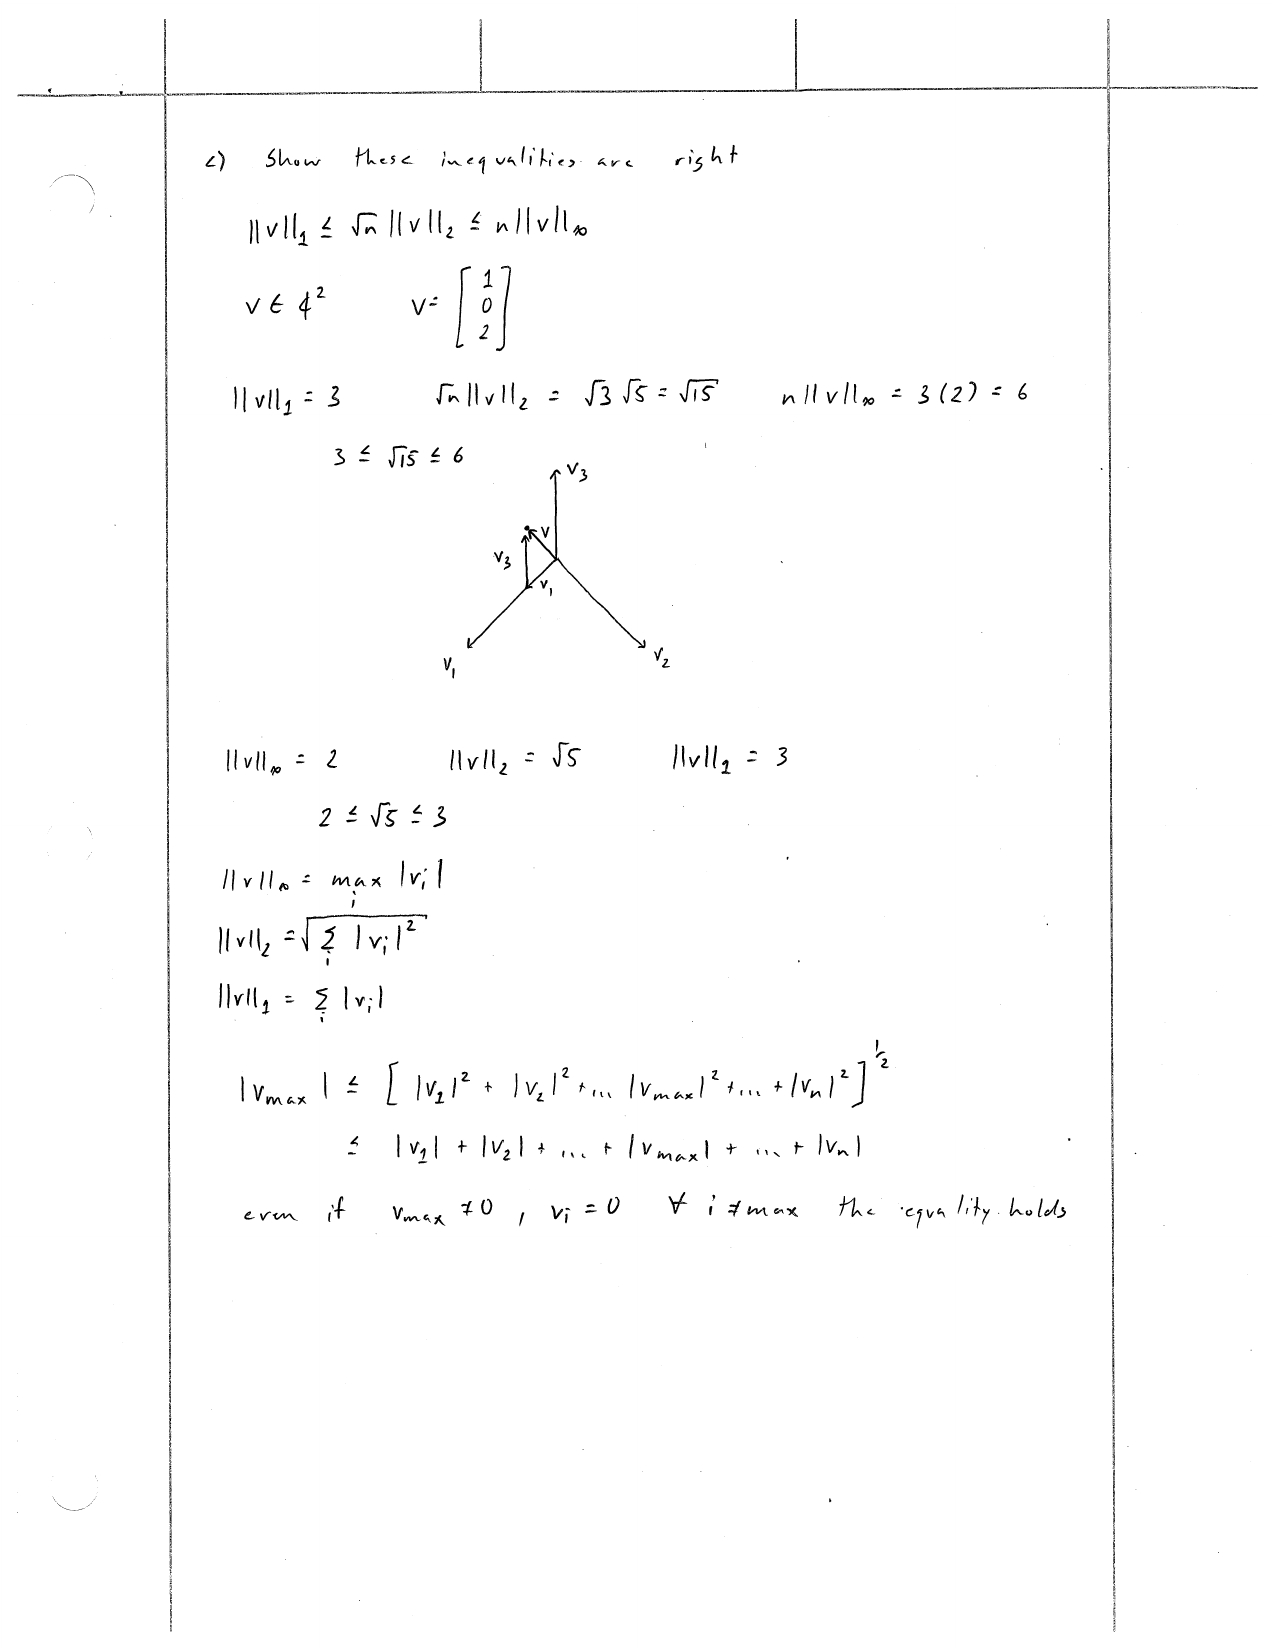 c) Show these inequalities are right
||v||₁ ≤ √n ||v||₂ ≤ n||v||∞
v ∈ ₵² v = [1 0 2]
||v||₁ = 3 √n||v||₂ = √3 √5 = √15 n||v||∞ = 3(2) = 6
3 ≤ √15 ≤ 6
v₃
v
v₃
v₁
v₁ v₂
||v||∞ = 2 ||v||₂ = √5 ||v||₁ = 3
2 ≤ √5 ≤ 3
||v||∞ = max_i |v_i|
||v||₂ = √(Σ_i |v_i|²)
||v||₁ = Σ_i |v_i|
|v_max| ≤ [ |v₁|² + |v₂|² + ... |v_max|² + ... + |v_n|² ]^½
≤ |v₁| + |v₂| + ... + |v_max| + ... + |v_n|
even if v_max ≠ 0 , v_i = 0 ∀ i ≠ max the equality holds